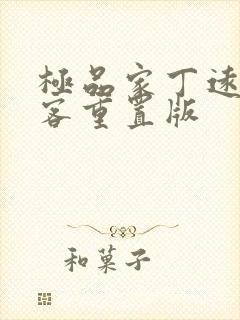 極品家丁逺
客重置版
和菓子